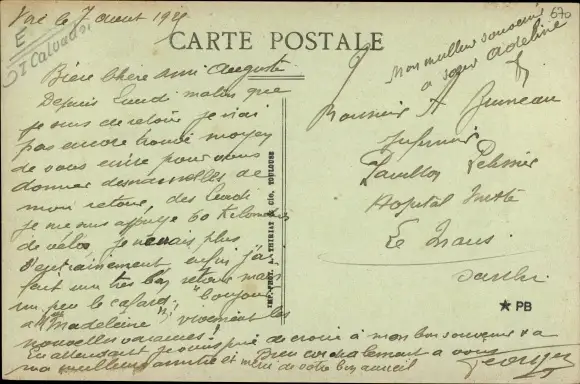 le 7 aout 19
E
St Calvados
670
CARTE POSTALE
Mon meilleur souvenir
a soeur Adeline
Bien chère ami Auguste
Depuis lundi matin que
je suis de retour je n'ai
pas encore trouvé moyen
de vous écrire pour vous
donner des nouvelles de
mon retour, dès lundi
je me suis appuyé 60 kilomètres
de vélo, je n'avais plus
D'entrainement enfin j'ai
fait un très bon retour mais
un peu le cafard, "bonjour
a "Madeleine", vivement les
nouvelles vacances!
En attendant je vous prie de croire à mon bon souvenir & a
ma meilleure amitié et merci de votre bon accueil
Bien cordialement a vous
Georges
IMP. PHOT. A. THIRIAT & Cie, TOULOUSE
Monsieur A
Infirmier
Pavillon
Hopital Mixte
Le Mans
Sarthe
★ PB